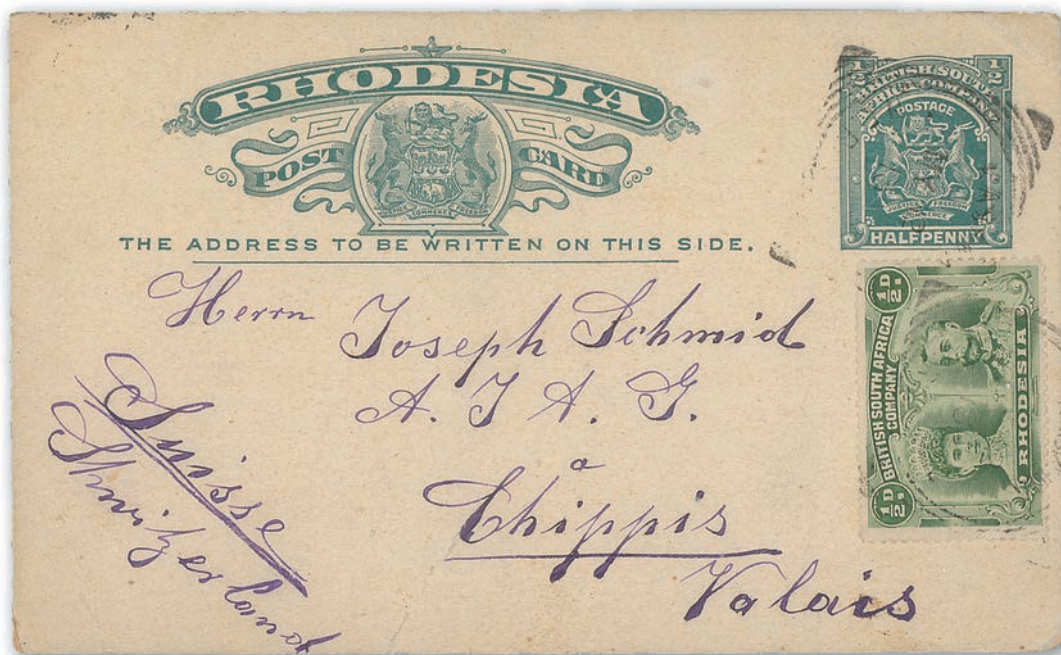 RHODESIA
POST CARD
JUSTICE COMMERCE FREEDOM
THE ADDRESS TO BE WRITTEN ON THIS SIDE.
1/2 1/2
BRITISH SOUTH
AFRICA COMPANY
POSTAGE
JUSTICE FREEDOM
COMMERCE
HALFPENNY
½D. ½D.
BRITISH SOUTH AFRICA
COMPANY
RHODESIA
Herrn Joseph Schmid
A. J A. G.
a
Chippis
Valais
Suisse
Shwitzerland